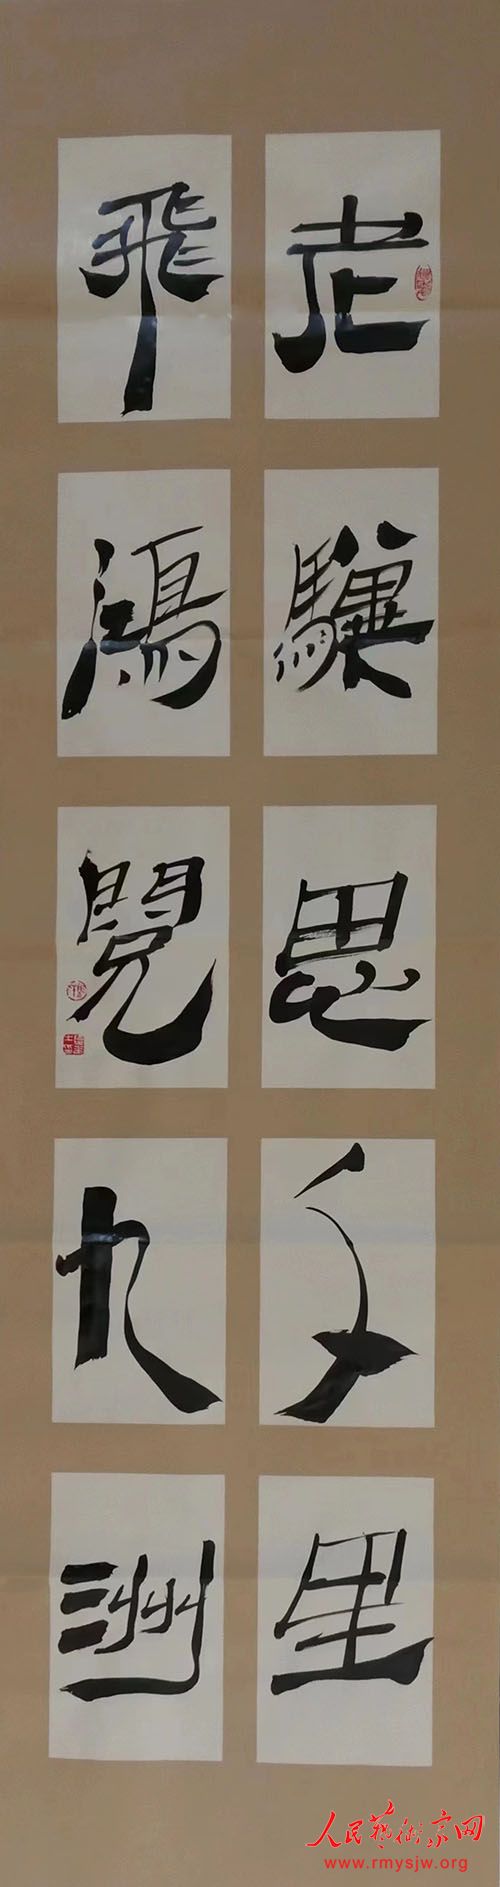 老驥思千里
飛鴻閱九洲
人民藝術家网
www.rmysjw.org